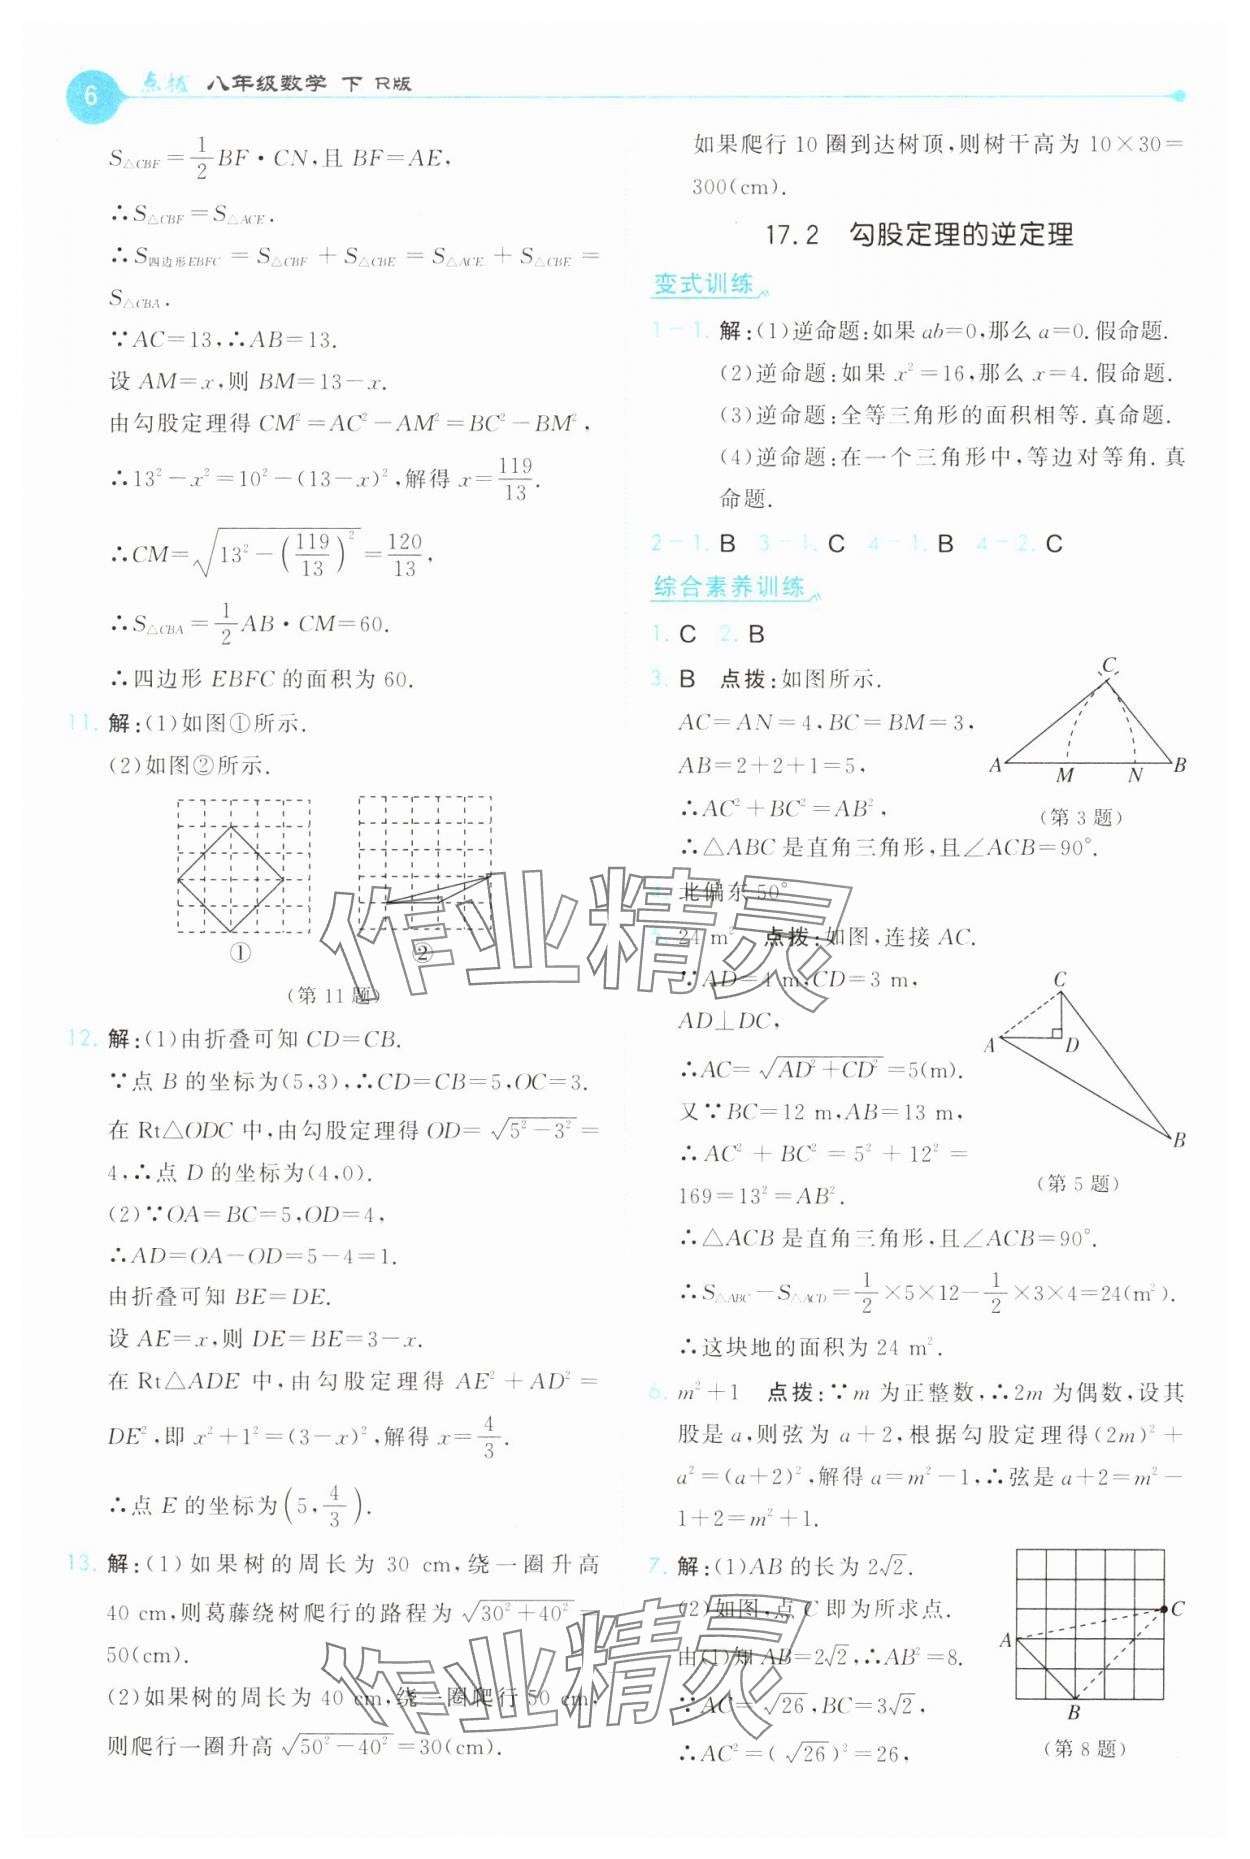 6 点拨 八年级数学 下 R版
S△CBF=1/2BF·CN,且 BF=AE,
∴S△CBF=S△ACE.
∴S四边形EBFC=S△CBF+S△CBE=S△ACE+S△CBE=
S△CBA.
∵AC=13,∴AB=13.
设 AM=x,则 BM=13-x.
由勾股定理得 CM²=AC²-AM²=BC²-BM²,
∴13²-x²=10²-(13-x)²,解得 x=119/13.
∴CM=√(13²-(119/13)²)=120/13,
∴S△CBA=1/2AB·CM=60.
∴四边形 EBFC 的面积为 60.
11. 解:(1)如图①所示.
(2)如图②所示.
① ②
(第 11 题)
12. 解:(1)由折叠可知 CD=CB.
∵点 B 的坐标为(5,3),∴CD=CB=5,OC=3.
在 Rt△ODC 中,由勾股定理得 OD=√(5²-3²)=
4,∴点 D 的坐标为(4,0).
(2)∵OA=BC=5,OD=4,
∴AD=OA-OD=5-4=1.
由折叠可知 BE=DE.
设 AE=x,则 DE=BE=3-x.
在 Rt△ADE 中,由勾股定理得 AE²+AD²=
DE²,即 x²+1²=(3-x)²,解得 x=4/3.
∴点 E 的坐标为(5,4/3).
13. 解:(1)如果树的周长为 30 cm,绕一圈升高
40 cm,则葛藤绕树爬行的路程为√(30²+40²)=
50(cm).
(2)如果树的周长为 40 cm,绕一圈爬行 50 cm,
则爬行一圈升高√(50²-40²)=30(cm).
如果爬行 10 圈到达树顶,则树干高为 10×30=
300(cm).
17.2 勾股定理的逆定理
变式训练
1-1. 解:(1)逆命题:如果 ab=0,那么 a=0.假命题.
(2)逆命题:如果 x²=16,那么 x=4.假命题.
(3)逆命题:全等三角形的面积相等.真命题.
(4)逆命题:在一个三角形中,等边对等角.真
命题.
2-1. B 3-1. C 4-1. B 4-2. C
综合素养训练
1. C 2. B
3. B 点拨:如图所示.
AC=AN=4,BC=BM=3,
AB=2+2+1=5,
∴AC²+BC²=AB²,
∴△ABC 是直角三角形,且∠ACB=90°.
C
A M N B
(第 3 题)
4. 北偏东 50°
5. 24 m² 点拨:如图,连接 AC.
∵AD=4 m,CD=3 m,
AD⊥DC,
∴AC=√(AD²+CD²)=5(m).
又∵BC=12 m,AB=13 m,
∴AC²+BC²=5²+12²=
169=13²=AB².
∴△ACB 是直角三角形,且∠ACB=90°.
C
A D
B
(第 5 题)
∴S△ABC-S△ACD=1/2×5×12-1/2×3×4=24(m²).
∴这块地的面积为 24 m².
6. m²+1 点拨:∵m 为正整数,∴2m 为偶数,设其
股是 a,则弦为 a+2,根据勾股定理得(2m)²+
a²=(a+2)²,解得 a=m²-1,∴弦是 a+2=m²-
1+2=m²+1.
7. 解:(1)AB 的长为 2√2.
(2)如图,点 C 即为所求点.
由(1)知 AB=2√2,∴AB²=8.
∵AC=√26,BC=3√2,
∴AC²=(√26)²=26,
C
A
B
(第 8 题)
作业精灵
作业精灵